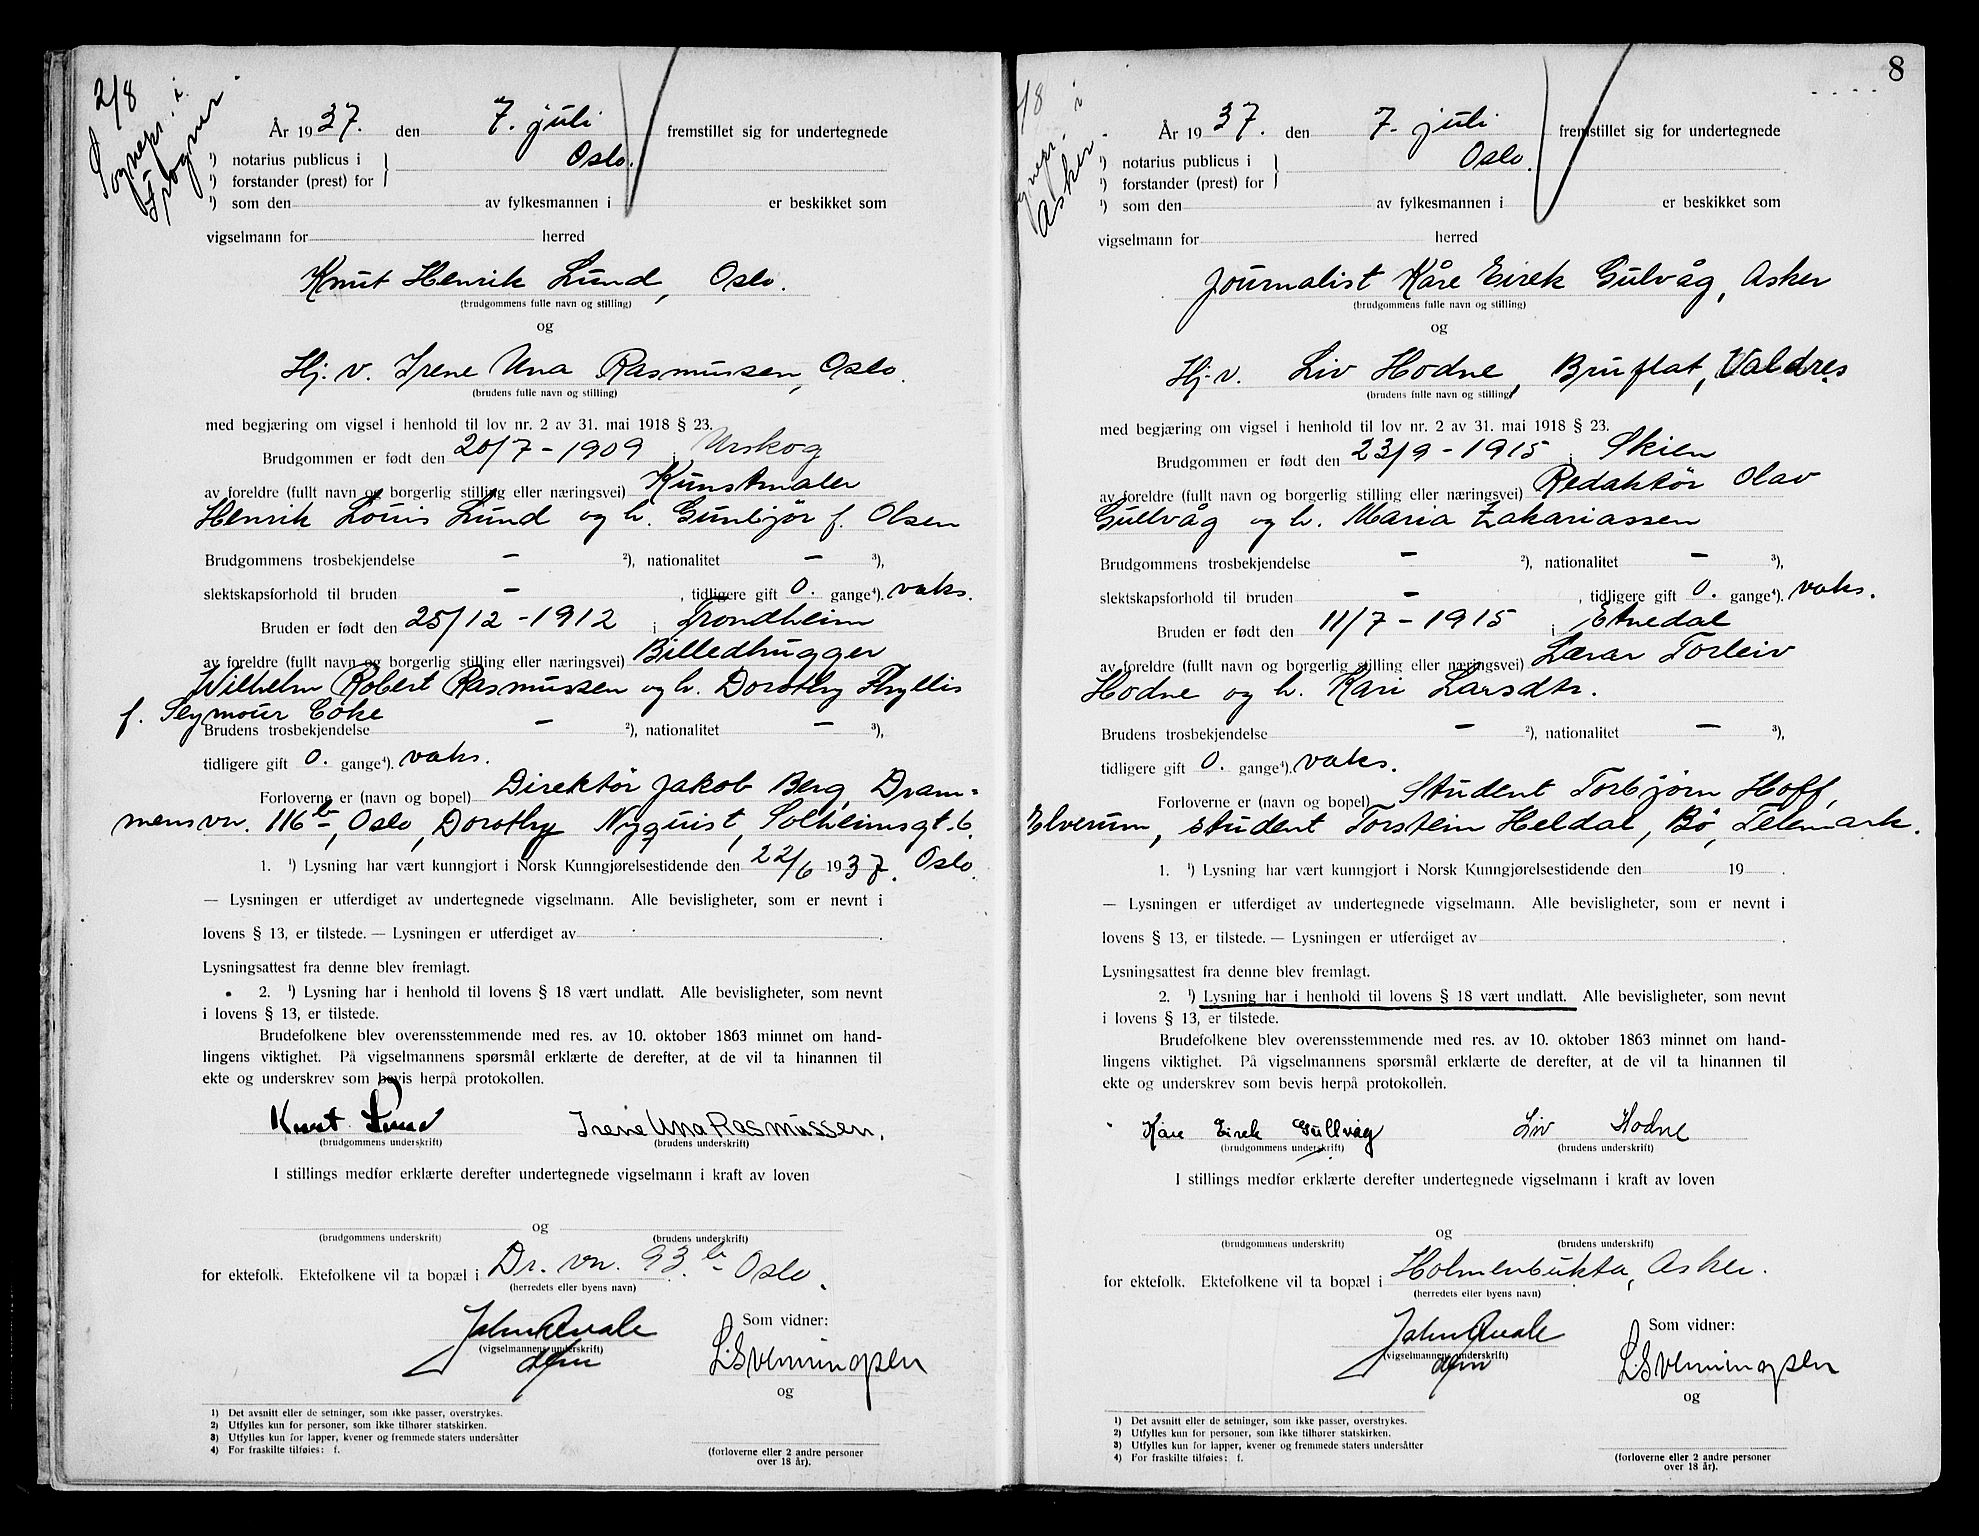 2/8
Sognepr. i
Frogner.
År 1937. den 7. juli fremstillet sig for undertegnede
¹) notarius publicus i Oslo.
¹) forstander (prest) for
¹) som den av fylkesmannen i er beskikket som
vigselmann for herred
Knut Henrik Lund, Oslo.
(brudgommens fulle navn og stilling)
og
Hj. v. Irene Una Rasmussen, Oslo.
(brudens fulle navn og stilling)
med begjæring om vigsel i henhold til lov nr. 2 av 31. mai 1918 § 23.
Brudgommen er født den 20/7 - 1909 i Urskog
av foreldre (fullt navn og borgerlig stilling eller næringsvei) Kunstmaler
Henrik Louis Lund og h. Gunbjør f. Olsen
Brudgommens trosbekjendelse - ²), nationalitet - ³),
slektskapsforhold til bruden - , tidligere gift 0. gange⁴). vaks.
Bruden er født den 25/12 - 1912 i Trondheim
av foreldre (fullt navn og borgerlig stilling eller næringsvei) Billedhugger
Wilhelm Robert Rasmussen og h. Dorothy Phyllis
f. Seymour Coke
Brudens trosbekjendelse - ²), nationalitet - ³),
tidligere gift 0. gange⁴). vaks.
Forloverne er (navn og bopel) Direktør Jakob Berg, Dram=
mensvn. 116 b, Oslo, Dorothy Nyquist, Solheimsgt. 6,
1. ¹) Lysning har vært kunngjort i Norsk Kunngjørelsestidende den 22/6 1937. Oslo.
— Lysningen er utferdiget av undertegnede vigselmann. Alle bevisligheter, som er nevnt i
lovens § 13, er tilstede. — Lysningen er utferdiget av .
Lysningsattest fra denne blev fremlagt.
2. ¹) Lysning har i henhold til lovens § 18 vært undlatt. Alle bevisligheter, som nevnt
i lovens § 13, er tilstede.
Brudefolkene blev overensstemmende med res. av 10. oktober 1863 minnet om hand-
lingens viktighet. På vigselmannens spørsmål erklærte de derefter, at de vil ta hinannen til
ekte og underskrev som bevis herpå protokollen.
Knut Lund Irene Una Rasmussen.
(brudgommens underskrift) (brudens underskrift)
I stillings medfør erklærte derefter undertegnede vigselmann i kraft av loven
og
(brudgommens underskrift) (brudens underskrift)
for ektefolk. Ektefolkene vil ta bopæl i Dr. vn. 93 b Oslo.
(herredets eller byens navn)
John Kvale
(vigselmannens underskrift)
Som vidner:
L. Svenningsen
og
1) Det avsnitt eller de setninger, som ikke passer, overstrykes.
2) Utfylles kun for personer, som ikke tilhører statskirken.
3) Utfylles kun for lapper, kvener og fremmede staters undersåtter
4) For fraskilte tilføies: f.
(forloverne eller 2 andre personer
over 18 år).
8
/8
gnepr. i
Asker.
År 1937. den 7. juli fremstillet sig for undertegnede
¹) notarius publicus i Oslo.
¹) forstander (prest) for
¹) som den av fylkesmannen i er beskikket som
vigselmann for herred
Journalist Kåre Eirek Gulvåg, Asker
(brudgommens fulle navn og stilling)
og
Hj. v. Liv Hodne, Bruflat, Valdres
(brudens fulle navn og stilling)
med begjæring om vigsel i henhold til lov nr. 2 av 31. mai 1918 § 23.
Brudgommen er født den 23/9 - 1915 i Skien
av foreldre (fullt navn og borgerlig stilling eller næringsvei) Redaktør Olav
Gullvåg og h. Maria Zakariassen
Brudgommens trosbekjendelse - ²), nationalitet - ³),
slektskapsforhold til bruden - , tidligere gift 0. gange⁴). vaks.
Bruden er født den 11/7 - 1915 i Etnedal
av foreldre (fullt navn og borgerlig stilling eller næringsvei) Lærar Torleiv
Hodne og h. Kari Larsdtr.
Brudens trosbekjendelse - ²), nationalitet - ³),
tidligere gift 0. gange⁴). vaks.
Forloverne er (navn og bopel) Student Torbjørn Hoff,
Elverum, student Torstein Heldal, Bø, Telemark.
1. ¹) Lysning har vært kunngjort i Norsk Kunngjørelsestidende den 19 .
— Lysningen er utferdiget av undertegnede vigselmann. Alle bevisligheter, som er nevnt i
lovens § 13, er tilstede. — Lysningen er utferdiget av .
Lysningsattest fra denne blev fremlagt.
2. ¹) Lysning har i henhold til lovens § 18 vært undlatt. Alle bevisligheter, som nevnt
i lovens § 13, er tilstede.
Brudefolkene blev overensstemmende med res. av 10. oktober 1863 minnet om hand-
lingens viktighet. På vigselmannens spørsmål erklærte de derefter, at de vil ta hinannen til
ekte og underskrev som bevis herpå protokollen.
Kåre Eirek Gullvåg Liv Hodne
(brudgommens underskrift) (brudens underskrift)
I stillings medfør erklærte derefter undertegnede vigselmann i kraft av loven
og
(brudgommens underskrift) (brudens underskrift)
for ektefolk. Ektefolkene vil ta bopæl i Holmenbukta, Asker.
(herredets eller byens navn)
John Kvale
(vigselmannens underskrift)
Som vidner:
L. Svenningsen
og
1) Det avsnitt eller de setninger, som ikke passer, overstrykes.
2) Utfylles kun for personer, som ikke tilhører statskirken.
3) Utfylles kun for lapper, kvener og fremmede staters undersåtter
4) For fraskilte tilføies: f.
(forloverne eller 2 andre personer
over 18 år).